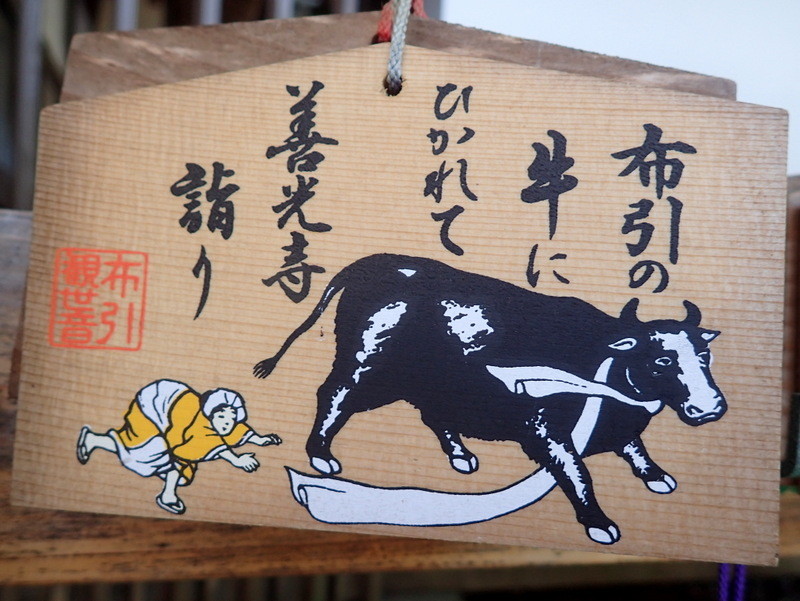 布引の
牛に
ひかれて
善光寺
詣り
布引
観世音